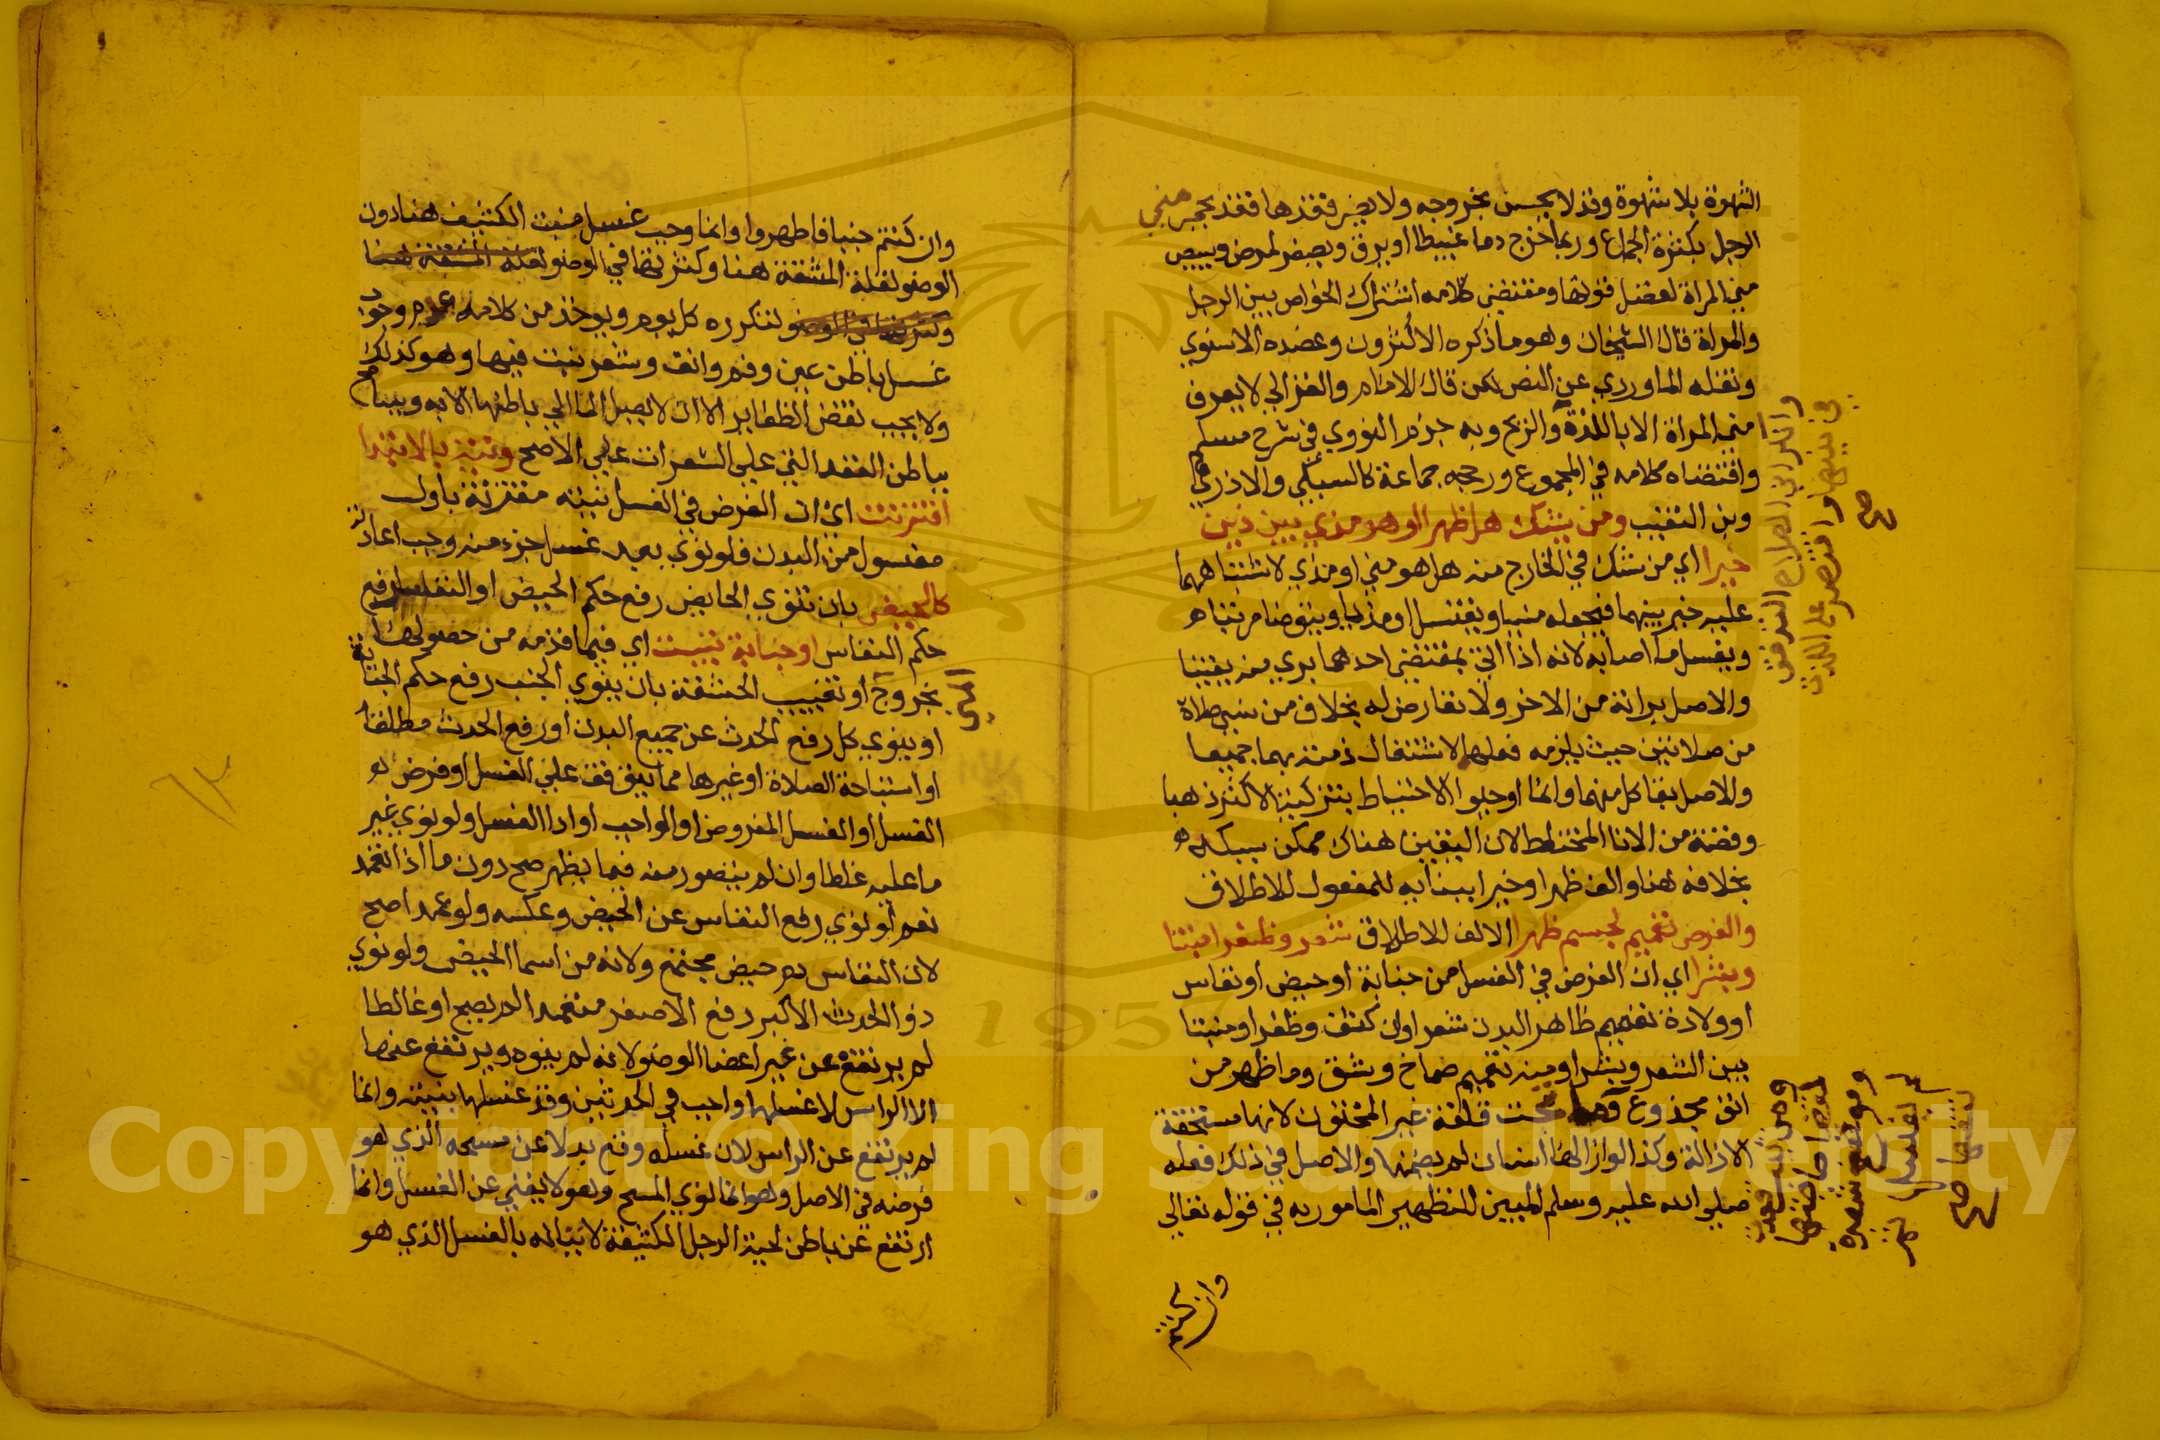 الشهوة بلا شهوة وقد لا يحس بخروجه ولا يضر فقدها فقد يحمر مني
الرجل بكثرة الجماع وربما خرج دما عبيطا او يرق ويصفر لمرض ويبيض
مني المراة لفضل قوتها ومقتضى كلامه اشتراك الخواص بين الرجل
والمراة قال الشيخان وهو ما ذكره الاكثرون وعضده الاسنوي
ونقله الماوردي عن النص لكن قال الامام والغزالي لا يعرف
مني المراة الا باللذة والريح وبه جزم النووي في شرح مسلم
واقتضاه كلامه في المجموع ورجحه جماعة كالسبكي والاذرعي
وبن النقيب ومن يشك هل ظهر او هو مذي بين ذين
خيرا اي من شك في الخارج منه هل هو مني او مذي لاشتباههما
عليه خير بينهما فيجعله منيا ويغتسل او مذيا ويتوضا مرتبا
ويغسل ما اصابه لانه اذا اتى بمقتضى احدهما بري منه يقينا
والاصل براته من الاخر ولا تعارض له بخلاف من نسي صلاة
من صلاتين حيث يلزمه فعلهما لاشتغال ذمته بهما جميعا
والاصل بقا كل منهما وانما اوجبوا الاحتياط بتزكية الاكثر ذهبا
وفضة من الانا المختلط لان اليقين هناك ممكن بسبكه
بخلافه هنا والف ظهرا وخيرا ببنايه للمفعول للاطلاق
والفرض تعميم لجسم ظهرا الالف للاطلاق شعر وظفرا منبتا
وبشرا اي ان الفرض في الغسل من جنابة او حيض او نفاس
او ولادة تعميم ظاهر البدن شعرا وان كثف وظفرا ومنبتا
بين الشعر وبشرا ومنه تعميم صماخ وشق وما ظهر من
انف مجدوع وما تحت قلفة غير المختون لانها مستحقة
الازالة وكذا لو ازالها انسان لم يضمنها والاصل في ذلك فعله
صلى الله عليه وسلم المبين للتطهير المامور به في قوله تعالى
وان كنتم
وان كنتم جنبا فاطهروا وانما وجب غسل منبت الكثيف هنا دون
الوضو لقلة المشقة هنا وكثرتها في الوضو
لتكرره كل يوم ويوخذ من كلامه عدم وجوب
غسل باطن عين وفم وانف وشعر نبت فيها وهو كذلك
ولا يجب نقض الظفاير الا ان لا يصل الما الى باطنها الا به ويسامح
بباطن العقد التي على الشعرات على الاصح ونية بالابتدا
اقترنت اي ان الفرض في الغسل نيته مقترنة باول
مغسول من البدن فلو نوى بعد غسل جزء منه وجب اعادته
كالحيض بان تنوي الحايض رفع حكم الحيض او النفاس رفع
حكم النفاس او جنابة تعينت اي فيما قدمه من حصولها
بخروج او تغييب الحشفة بان ينوي الجنب رفع حكم الجنابة
او ينوي كل رفع الحدث عن جميع البدن او رفع الحدث مطلقا
او استباحة الصلاة او غيرها مما يتوقف على الغسل او فرض
الغسل او الغسل المفروض او الواجب او ادا الغسل ولو نوى غير
ما عليه غلطا وان لم يتصور منه فيما يظهر صح دون ما اذا تعمد
نعم لو نوى رفع النفاس عن الحيض وعكسه ولو عمدا صح
لان النفاس دم حيض مجتمع ولانه من اسما الحيض ولو نوى
ذو الحدث الاكبر رفع الاصغر متعمدا لم يصح او غالطا
لم يرتفع عن غير اعضا الوضو لانه لم ينوه ويرتفع عنها
الا الراس لان غسلها واجب في الحدثين وقد غسلها بنيته وانما
لم يرتفع عن الراس لان غسله وقع بدلا عن مسحه الذي هو
فرضه في الاصل وهو انما نوى المسح وهو لا يغني عن الغسل وانما
ارتفع عن باطن لحية الرجل الكثيفة لاتيانه بالغسل الذي هو